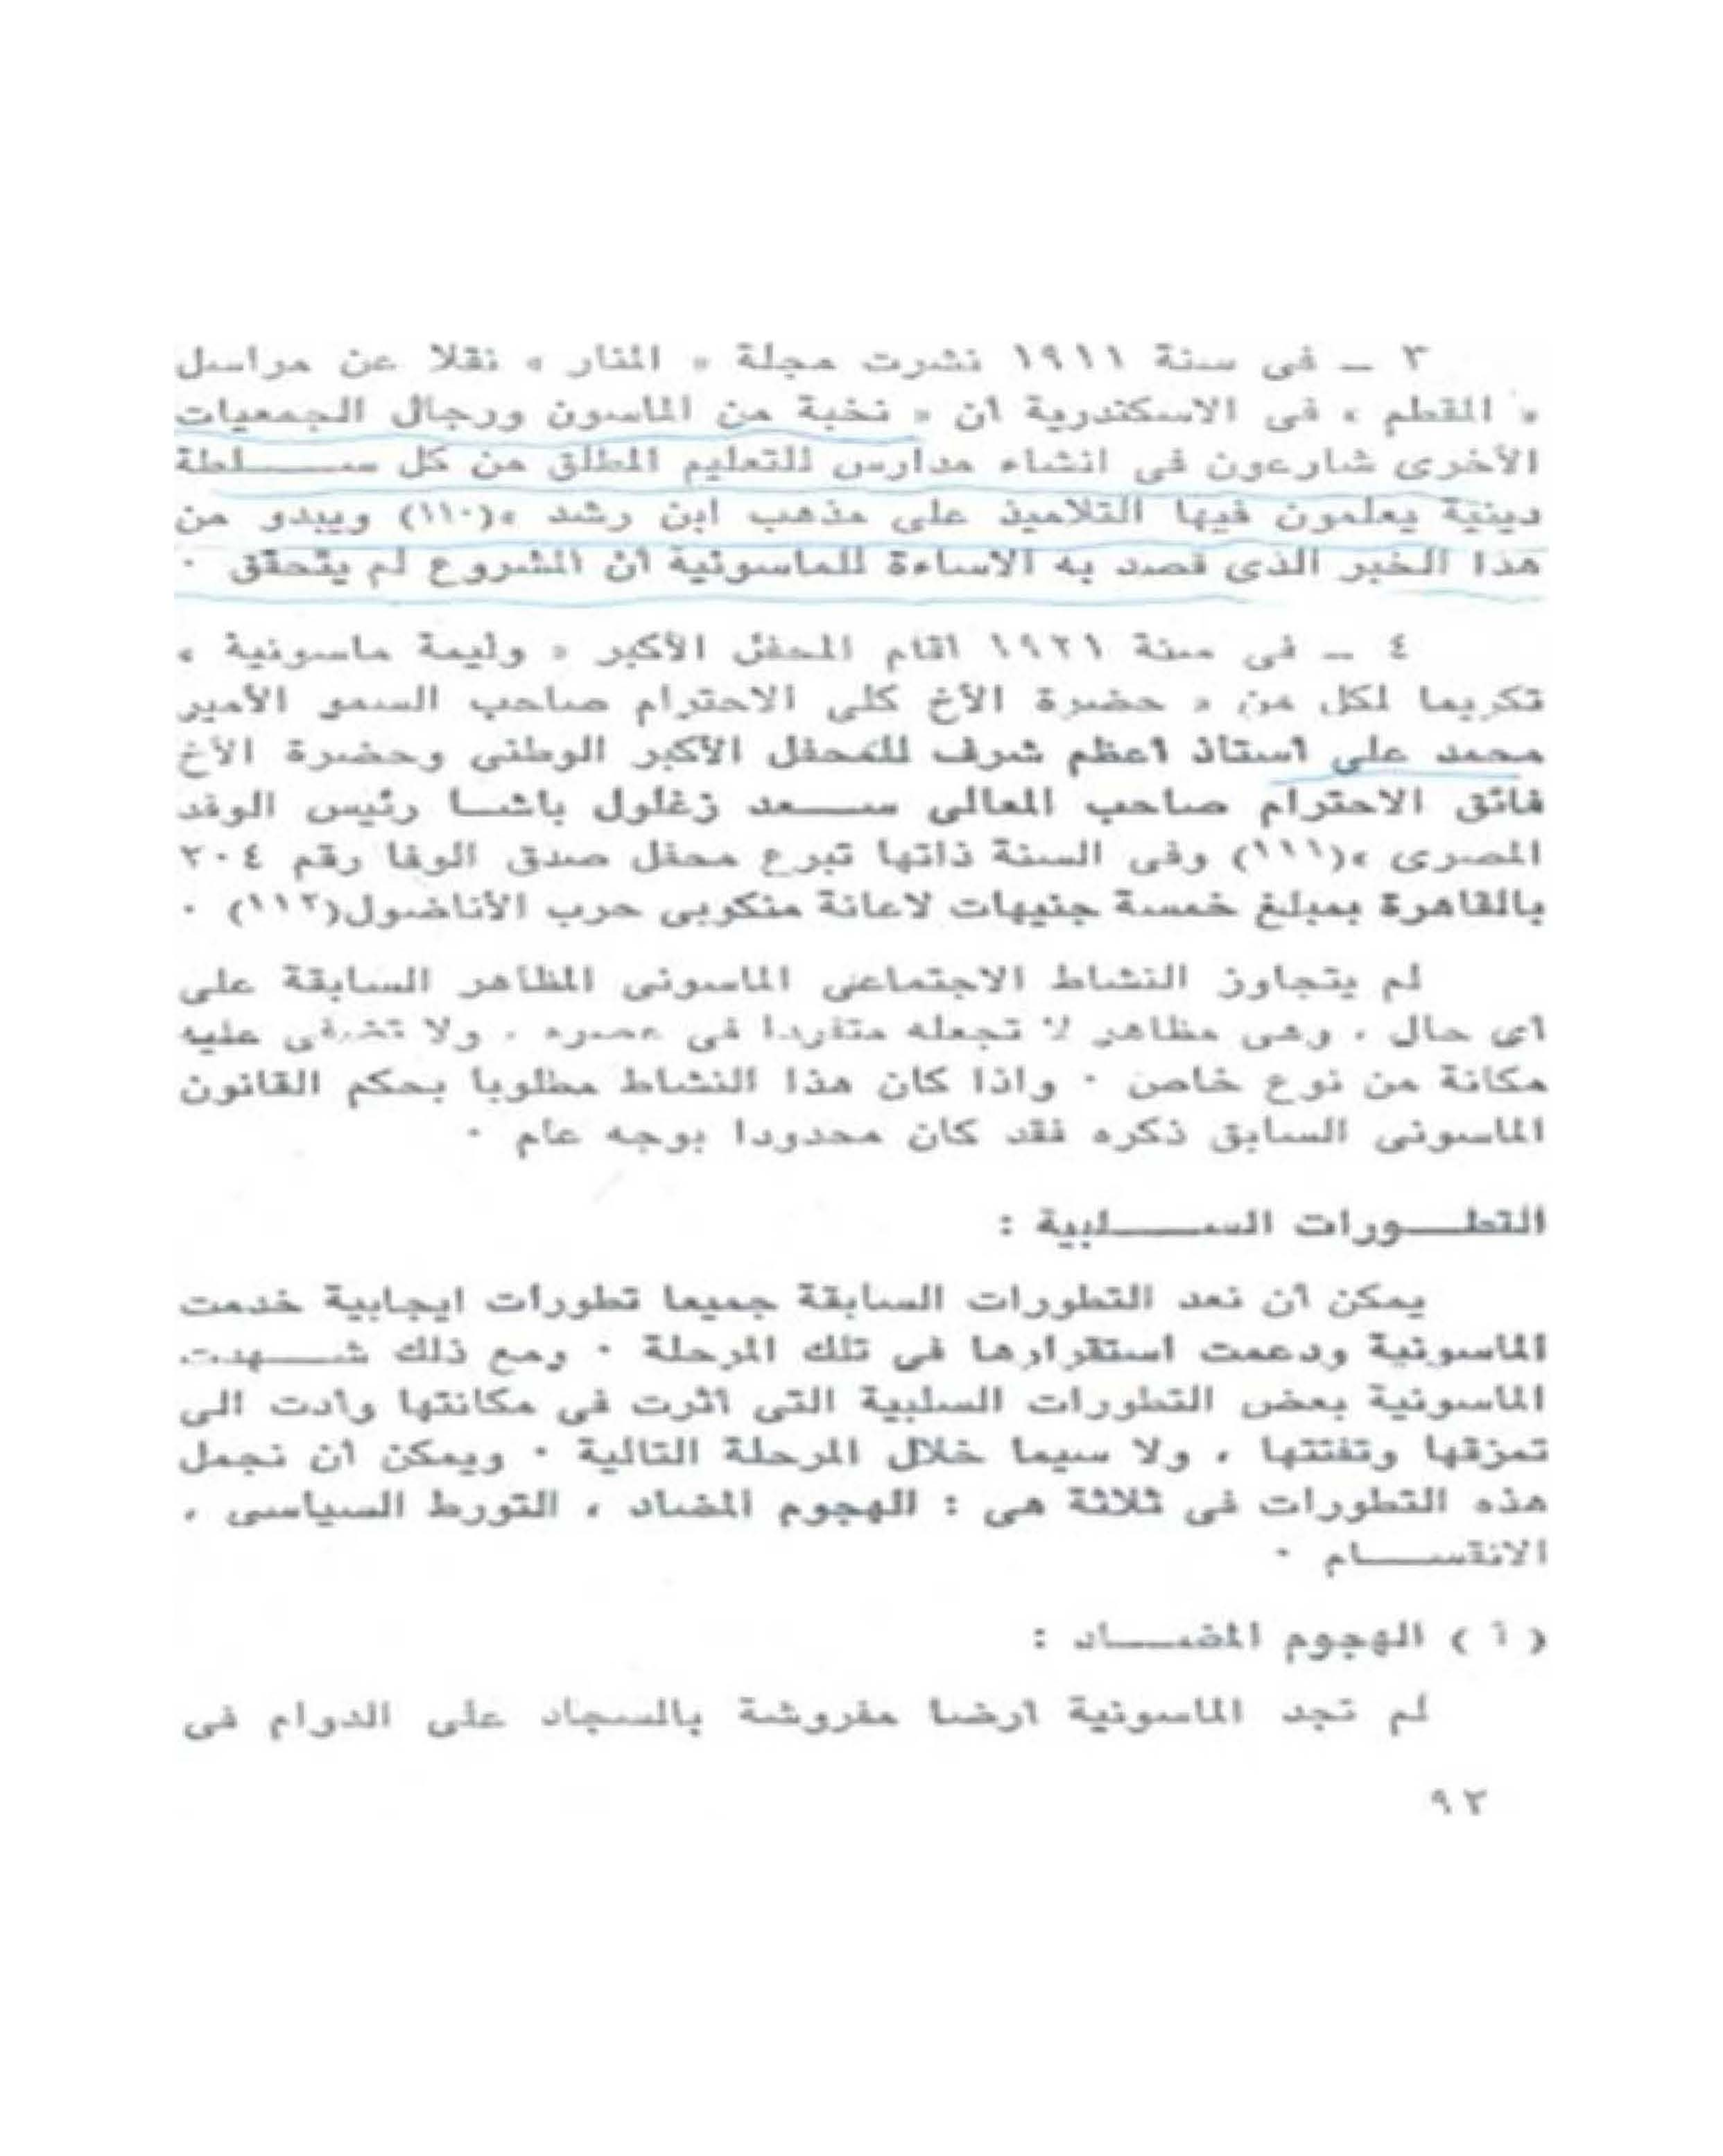 ٣ ــ فى سنة ١٩١١ نشرت مجلة « المنار » نقلا عن مراسل
« المقطم » فى الاسكندرية أن « نخبة من الماسون ورجال الجمعيات
الأخرى شارعون فى انشاء مدارس للتعليم المطلق من كل ســــلطة
دينية يعلمون فيها التلاميذ على مذهب ابن رشد »(١١٠) ويبدو من
هذا الخبر الذى قصد به الاساءة للماسونية أن المشروع لم يتحقق ٠
٤ ــ فى سنة ١٩٢١ أقام المحفل الأكبر « وليمة ماسونية »
تكريما لكل من « حضرة الأخ كلى الاحترام صاحب السمو الأمير
محمد على أستاذ أعظم شرف للمحفل الأكبر الوطنى وحضرة الأخ
فائق الاحترام صاحب المعالى ســعد زغلول باشــا رئيس الوفد
المصرى »(١١١) وفى السنة ذاتها تبرع محفل صدق الوفا رقم ٣٠٤
بالقاهرة بمبلغ خمسة جنيهات لاعانة منكوبى حرب الأناضول(١١٢) ٠
لم يتجاوز النشاط الاجتماعى الماسونى المظاهر السابقة على
أى حال ، وهى مظاهر لا تجعله متفردا فى عصره ، ولا تضفى عليه
مكانة من نوع خاص ٠ واذا كان هذا النشاط مطلوبا بحكم القانون
الماسونى السابق ذكره فقد كان محدودا بوجه عام ٠
التطــورات الســـلبية :
يمكن أن نعد التطورات السابقة جميعا تطورات ايجابية خدمت
الماسونية ودعمت استقرارها فى تلك المرحلة ٠ ومع ذلك شــهدت
الماسونية بعض التطورات السلبية التى أثرت فى مكانتها وأدت الى
تمزقها وتفتتها ، ولا سيما خلال المرحلة التالية ٠ ويمكن أن نجمل
هذه التطورات فى ثلاثة هى : الهجوم المضاد ، التورط السياسى ،
الانقســـام ٠
( أ ) الهجوم المضـــاد :
لم تجد الماسونية أرضا مفروشة بالسجاد على الدوام فى
٩٢